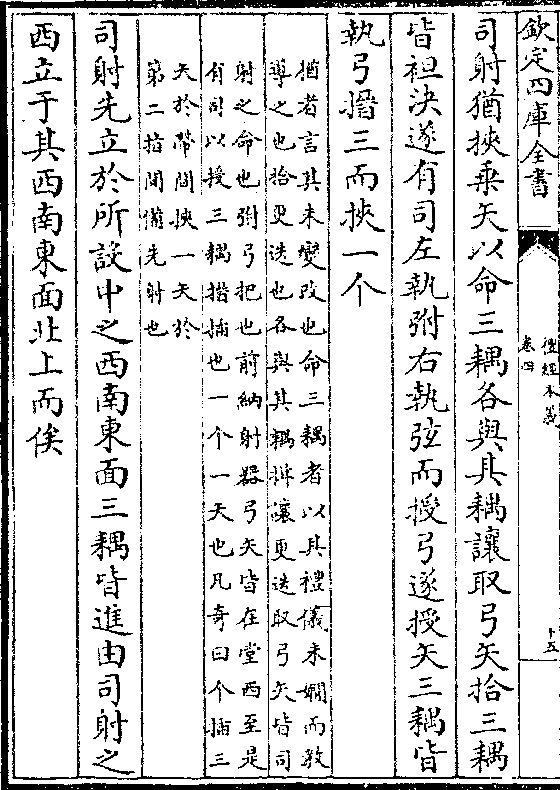 欽定四庫全書
禮經本義
卷四
十五
司射猶挾乗矢以命三耦各與其耦讓取弓矢拾三耦
皆袒決遂有司左執弣右執弦而授弓遂授矢三耦皆
執弓搢三而挾一个
猶者言其未變改也命三耦者以其禮儀未嫻而教
導之也拾更迭也各與其耦揖讓更迭取弓矢皆司
射之命也弣弓把也前納射器弓矢皆在堂西至是
有司以授三耦搢插也一个一矢也凡奇曰个插三
矢於帶間挾一矢於
第二指間備先射也
司射先立於所設中之西南東面三耦皆進由司射之
西立于其西南東面北上而俟